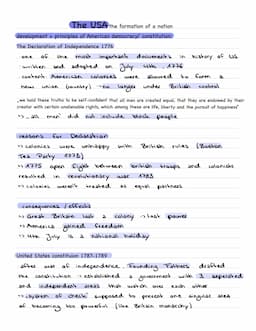 The USA the formation of a nation
development + principles of American democracy/ constitution
The Declaration of Independence 1776
- one of the most important documents in history of US
- written and adopted on July 4th 1776
- content: American colonies were allowed to form a
new union (country) → no longer under British control
„we hold these truths to be self-evident that all men are created equal, that they are endowed by their
creator with certain unalienable rights, which among these are life, liberty and the pursuit of happiness"
→ „all men" did not include black people
reasons for Declaration
→ colonies were unhappy with British rules (Boston
Tea Party 1773)
→ 1775 open fight between british troops and colonists
resulted in revolutionary war 1783
→ colonies weren't treated as equal partners
consequences / effects
→ Great Britain lost a colony → lost power
→ America gained freedom
→ 4th July is a national holiday
United States constitution 1787-1789
- after war of independence, Founding Fathers drafted
the constitution → established a government with 3 seperated
and independent areas that watch over each other
→ „system of checks" supposed to prevent one singular area
of becoming too powerful (like British monarchy)